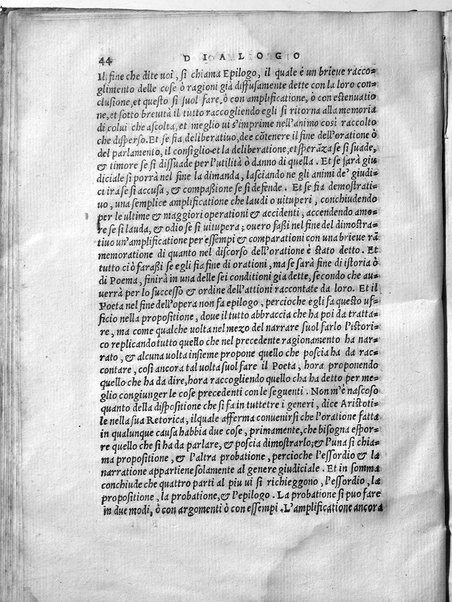 44 DIALOGO
Il fine che dite uoi, si chiama Epilogo, il quale è un brieue racco-
glimento delle cose ò ragioni già diffusamente dette con la loro con-
clusione, et questo si suol fare, ò con amplificatione, ò con estenuatio
ne, et sotto breuità il tutto raccogliendo egli si ritorna alla memoria
di colui che ascolta, et meglio ui s'imprime nell'animo così raccolto
che disperso. Et se sarà deliberatiuo, dee cōtenere il fine dell'oratione ò
del parlamento, il consiglio et la deliberatione, et sperāza se si suade,
& timore se si dissuade per l'utilità ò danno di quella. Et se sarà giu-
diciale si porrà nel fine la dimanda, lasciando ne gli animi de' giudi-
ci ira se si accusa, & compassione se si defende. Et se fia demostrati-
uo, una semplice amplificatione che laudi o uituperi, conchiudendo
per le ultime & maggiori operationi & accidenti, accendendo amo-
re se si lauda, & odio se si uitupera; ouero fassi nel fine del dimostra-
tiuo un'amplificatione per essempi & comparationi con una brieue rā
memoratione di quanto nel discorso dell'oratione è stato detto. Et
tutto ciò farassi se egli fia fine di orationi, ma se sarà fine di istoria ò
di Poema, finirà in una delle sei conditioni già dette, secondo che au-
uerrà per lo successo & ordine dell'attioni raccontate da loro. Et il
Poeta nel fine dell'opera non fa epilogo, percioche egli fa questo uf-
ficio nella propositione, doue il tutto abbraccia che ha poi da tratta-
re, ma come qualche uolta nel mezo del narrare suol farlo l'istorico
replicando tutto quello che nel precedente ragionamento ha nar-
rato, & alcuna uolta insieme propone quello che poscia ha da rac-
contare, così ancora tal uolta suol fare il Poeta, hora proponendo
quello che ha da dire, hora raccogliendo quello cha ha detto per me-
glio congiunger le cose precedenti con le seguenti. Non m'è nascoso
quanto della dispositione che si fa in tutte tre i generi, dice Aristoti-
le nella sua Retorica, il quale afferma conuenirsi che l'oratione fatta
in qualunque causa habbia due cose, primamente, che bisogna espor-
re quello che si ha da parlare, & poscia dimostrarlo; & l'una si chia-
ma propositione, & l'altra probatione, percioche l'essordio & la
narratione appartiene solamente al genere giudiciale. Et in somma
conchiude che quattro parti al piu ui si richieggono, l'essordio, la
propositione, la probatione, & l'epilogo. La probatione si puo fare
in due modi, ò con argomenti ò con essempi. L'amplificatione ancora